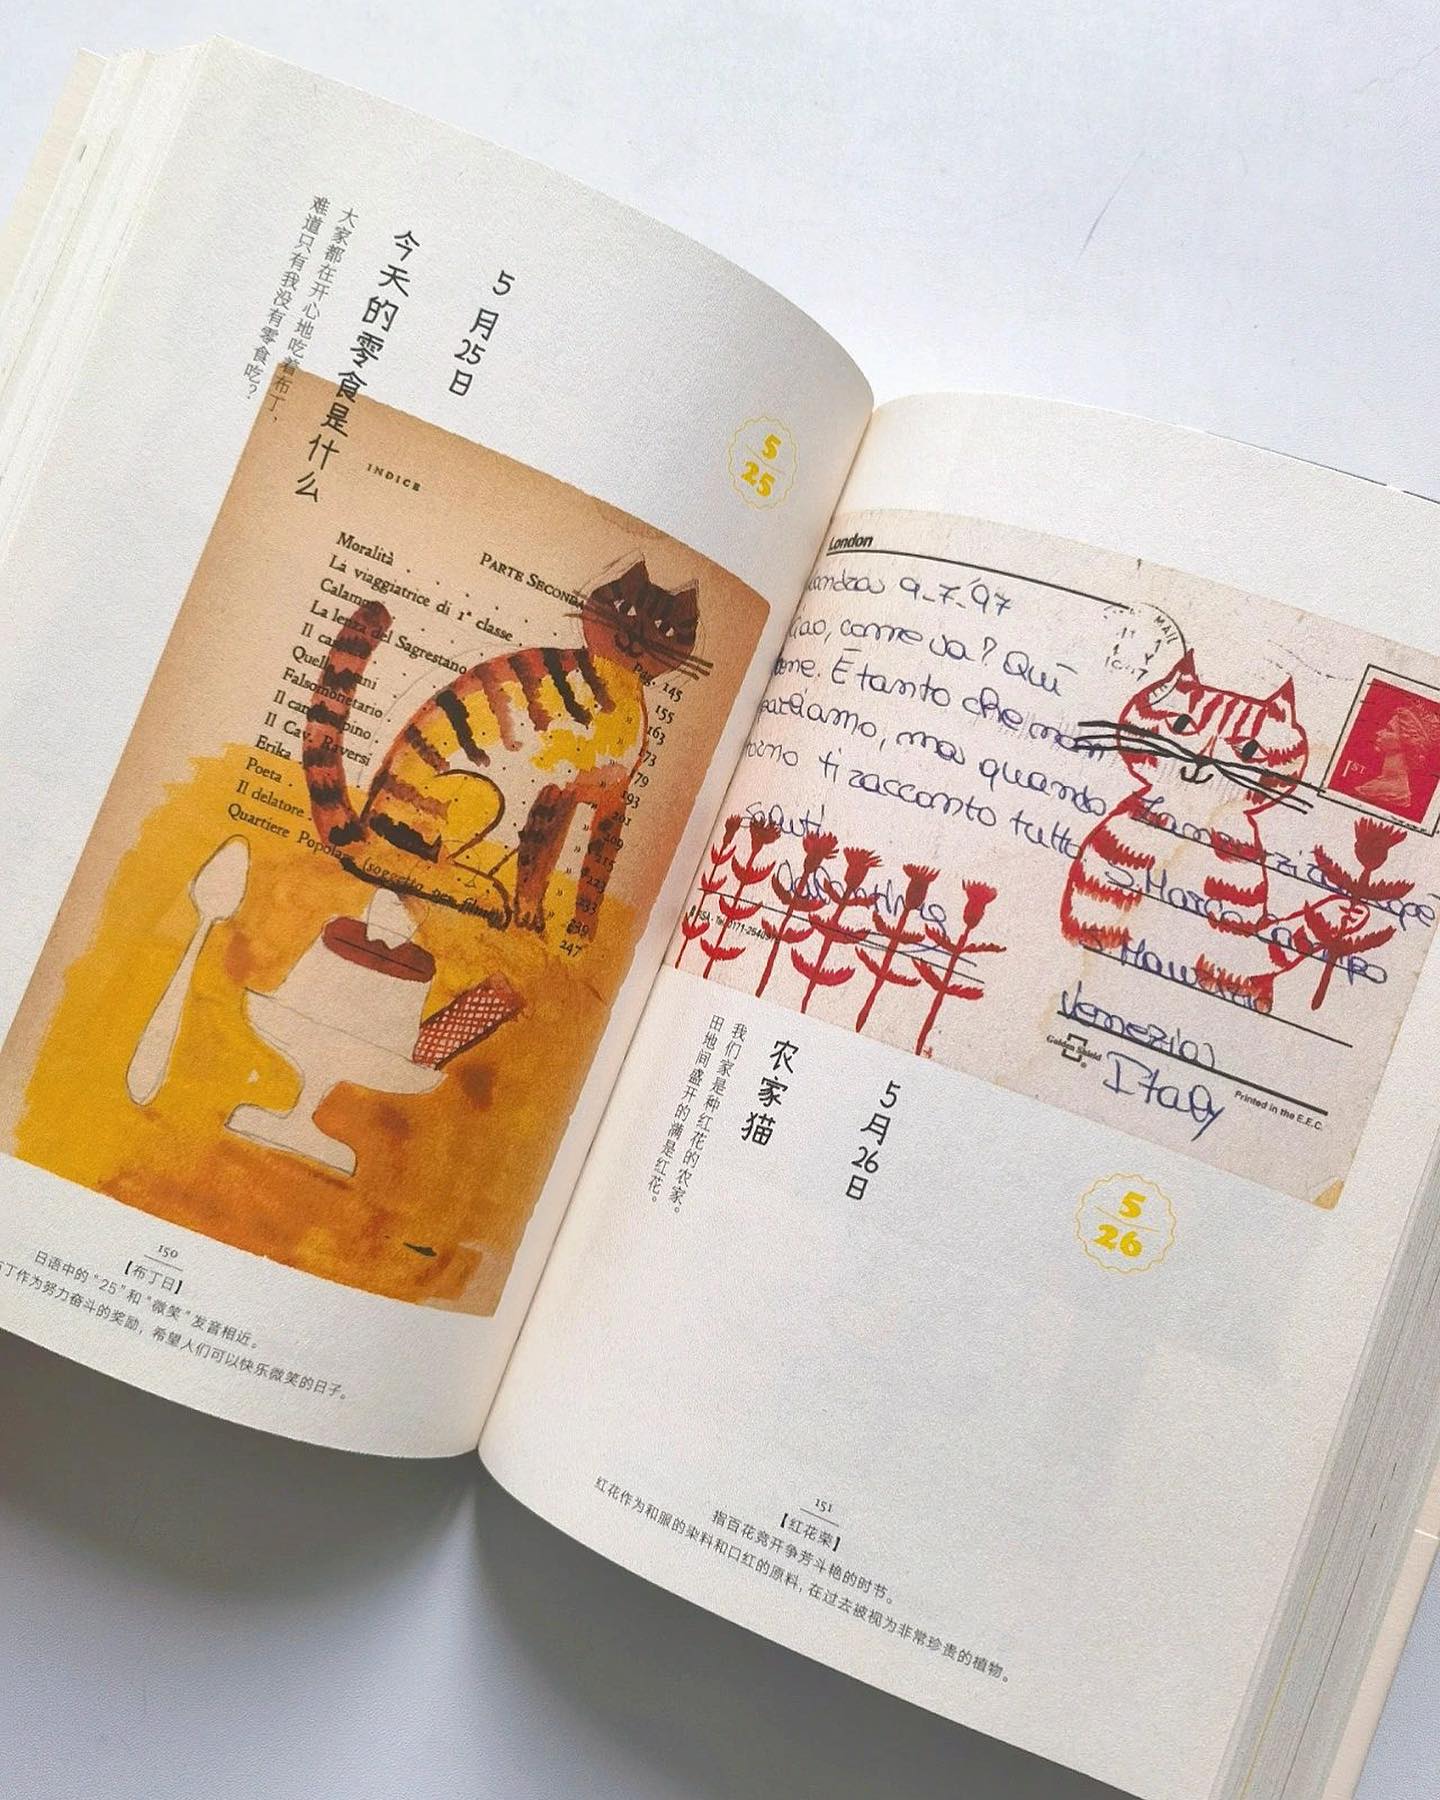 5月25日
今天的零食是什么
大家都在开心地吃着布丁，
难道只有我没有零食吃？
5
25
INDICE
PARTE SECONDA
Moralità
La viaggiatrice di 1ª classe
La lenza del Sagrestano
Falsomonetario
Il Cav. Raversi
Erika
Poeta
Il delatore
Quartiere Popolare (soggetto per film)
Pag. 145
» 155
» 163
» 173
» 179
» 193
» 201
» 209
» 215
» 223
» 233
» 239
» 247
150
【布丁日】
日语中的“25”和“微笑”发音相近。
布丁作为努力奋斗的奖励，希望人们可以快乐微笑的日子。
London
9-7-97
Ciao, come va? Qui
bene. È tanto che non
parliamo, ma quando
torno ti racconto tutto
Saluti
MAIL
1ST
S. Marco campo
S. Maurizio
Venezia
Italy
Golden Shield
Printed in the E.E.C.
5月26日
农家猫
我们家是种红花的农家。
田地间盛开的满是红花。
5
26
151
【红花荣】
指百花竞开争芳斗艳的时节。
红花作为和服的染料和口红的原料，在过去被视为非常珍贵的植物。